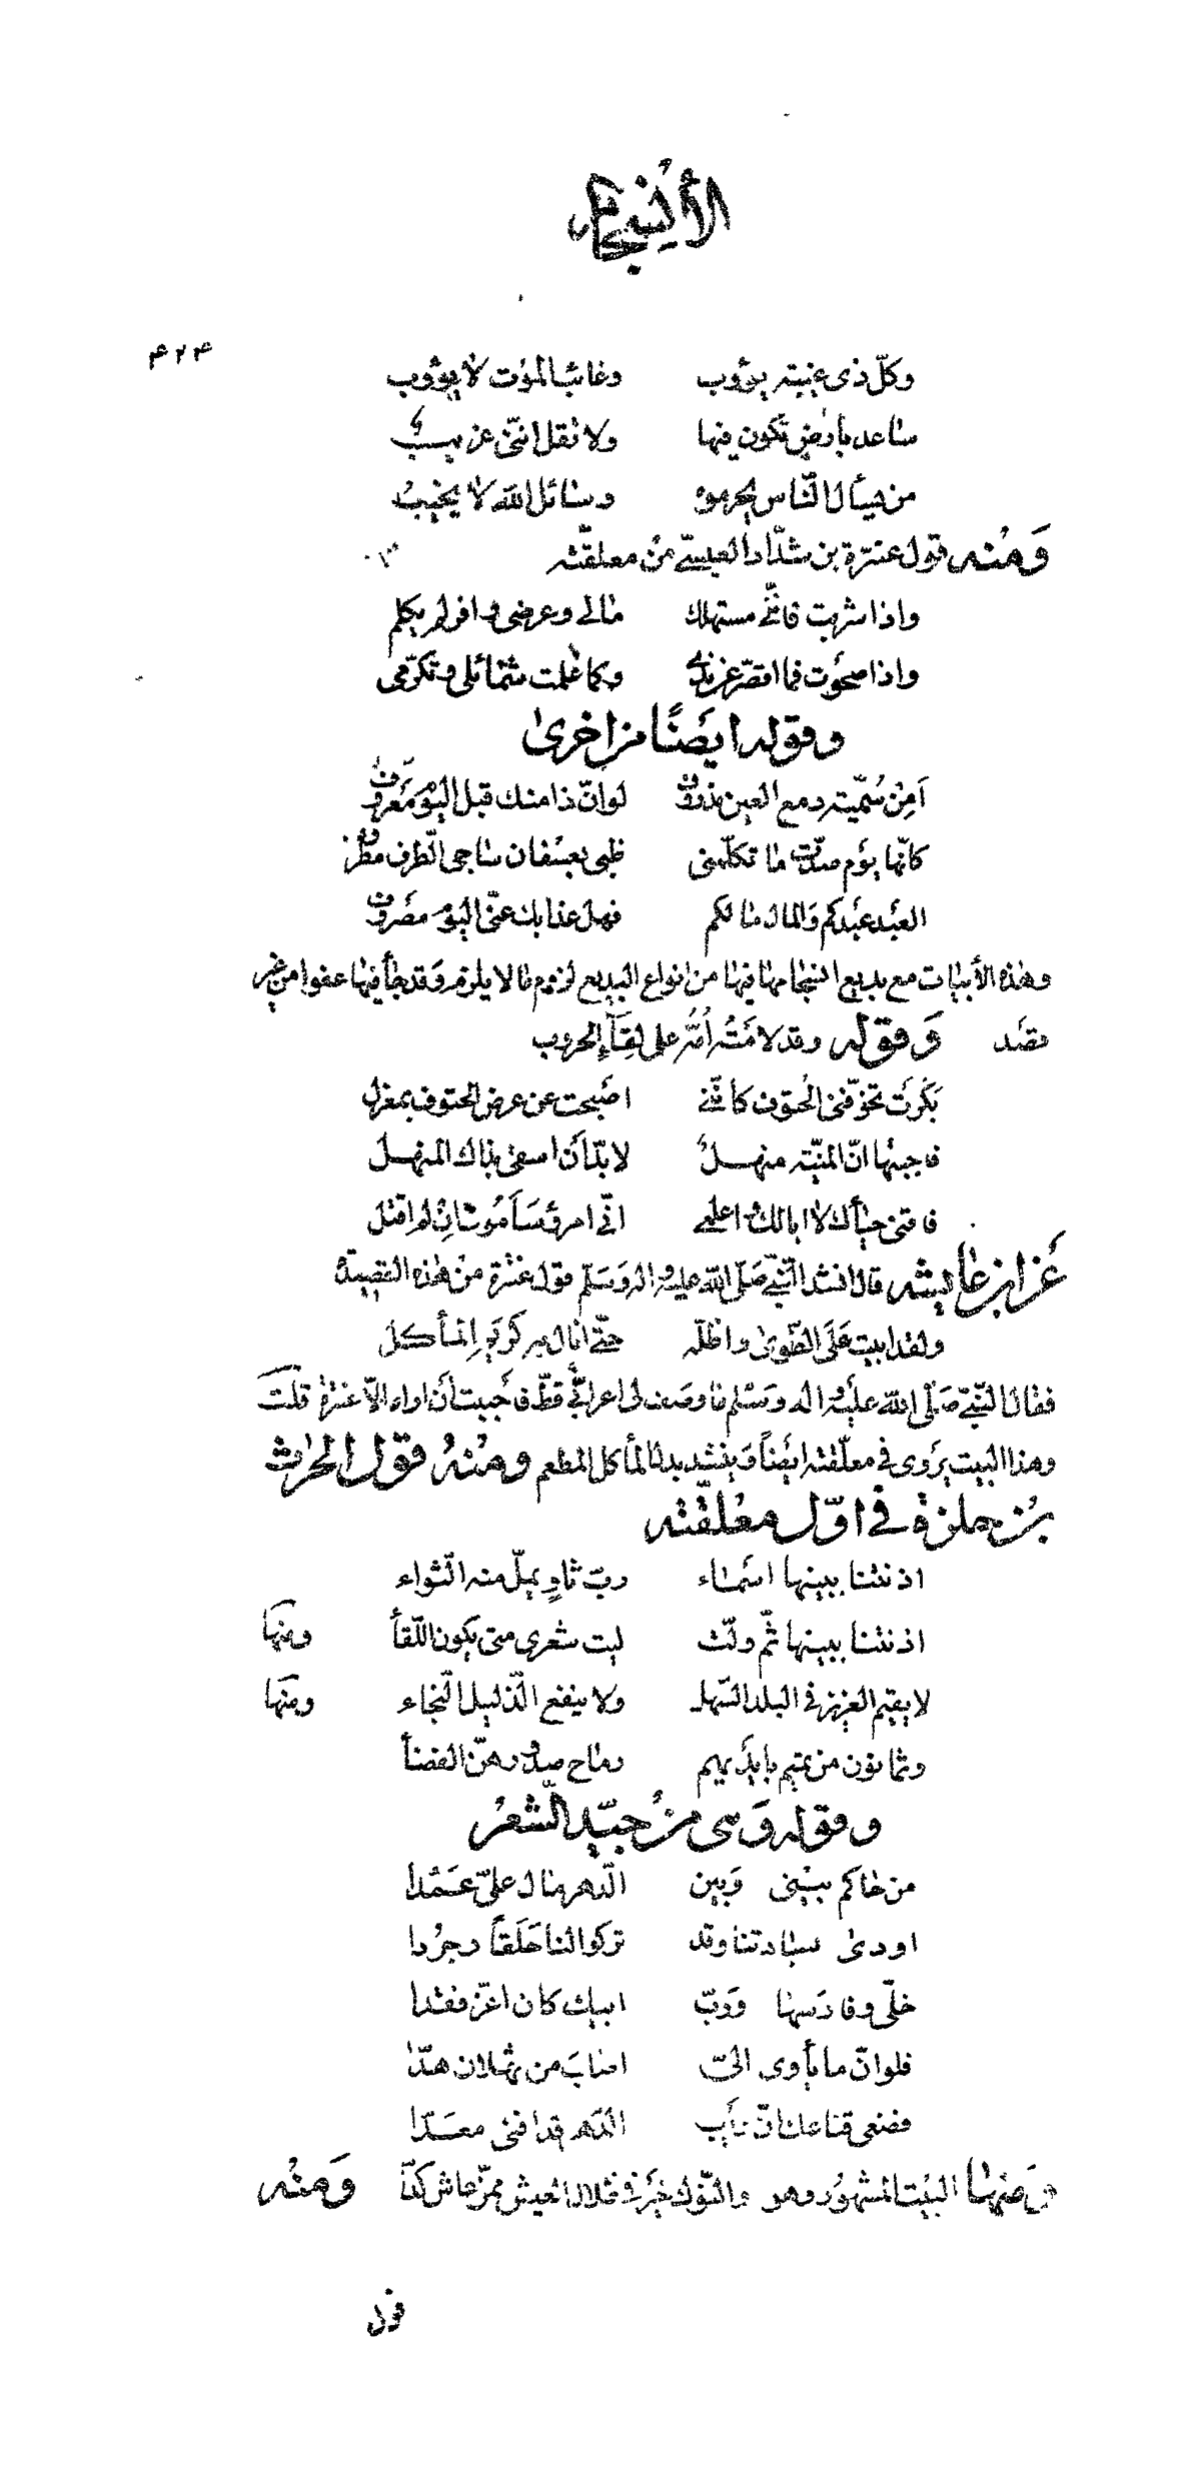 الأنسجام
۴۲۴
وكلّ ذى غيبته يؤوب وغائب الموت لا يؤوب
ساعد بأرض تكون فيها ولا تقل انّنى غريب
من يسأل النّاس يحرموه وسائل الله لا يخيب
وَمنه قول عنترة بن شدّاد العبسىّ من معلقّته
واذا شربت فانّنى مستهلك مالى وعرضى وافر لم يكلم
واذا صحوت فما اقصّر عن ندى وكما علمت شمائلى وتكرّمى
وقوله ايضًا من اخرىٰ
اَمِنْ سُمّيته دمع العين مذروف لو انّ ذا منك قبل اليوم معروف
كانّها يوم صدّت ما تكلّمنى ظبى بعسفان ساجى الطّرف مطروف
العبد عبدكم وَالمال مالكم فهل عذابك عنّى اليوم مصروف
وهذه الأبيات مع بديع انسجامها فيها من انواع البديع لزوم ما لا يلزم وَقد جاء فيها عفوا من غير
قصد وَقوله وقد لامَتْه اُمّه على لقاءِ الحروب
بَكَرَت تخوّفنى الحتوف كانّنى اصبحت عن عرض الحتوف بمعزل
فاجبتها انّ المنيّته منهـل لا بدّ أَن اسقى بذاك المنهـل
فاقنى حيأك لا ابا لك واعلمى انّى امرؤ سَأَموت ان لم اقتل
عَن ابن عايشه قال انشد النّبىّ صَلّى الله عليه واله وَسَلّم قول عنترة من هذه القصيدة
ولقد ابيت عَلَى الطّوىٰ واظلّه حتّى انال به كريم المأكل
فقال النّبىّ صَلّى الله عليه واله وَسَلّم ما وصف لى اعرابىّ قطّ فأحببت أن اراه الاّ عنترة قلت
وهذا البيت يروى فى معلّقته ايضاً وَينشد بدل المأكل المطعم ومنهُ قول الحرٰث
بن حلزة فى اوّل معلقّته
اذنتنا ببينها اسماء ربّ ثاوٍ يملّ منه الثّواء
اذنتنا ببينها ثمّ ولّت ليت شعرى متى يكون اللّقأ ومنها
لا يقيم العزيز فى البلد السّهل ولا ينفع الذّليل النّجاء ومنها
وثمانون من تميم بايديهم رماح صدورهنّ القضأ
وقوله وَهى من جيّد الشّعر
من حاكم بينى وَبين الدّهر مال علىّ عَمْدا
اودىٰ بسادتنا وقد تركوا لنا حَلَقاً وجُردا
خلّى وفارسها وَربّ ابيك كان اعزّ فقدا
فلو انّ ما يأوى الىّ اصابَ من ثهلان هدّا
فضعى قناعك انّ ريب الدّهر قد افنى معَدّا
وَمنها البيت المشهور وهو والنّوك خير فى ظلال العيش ممّن عاش كدّاً وَمنه
قول